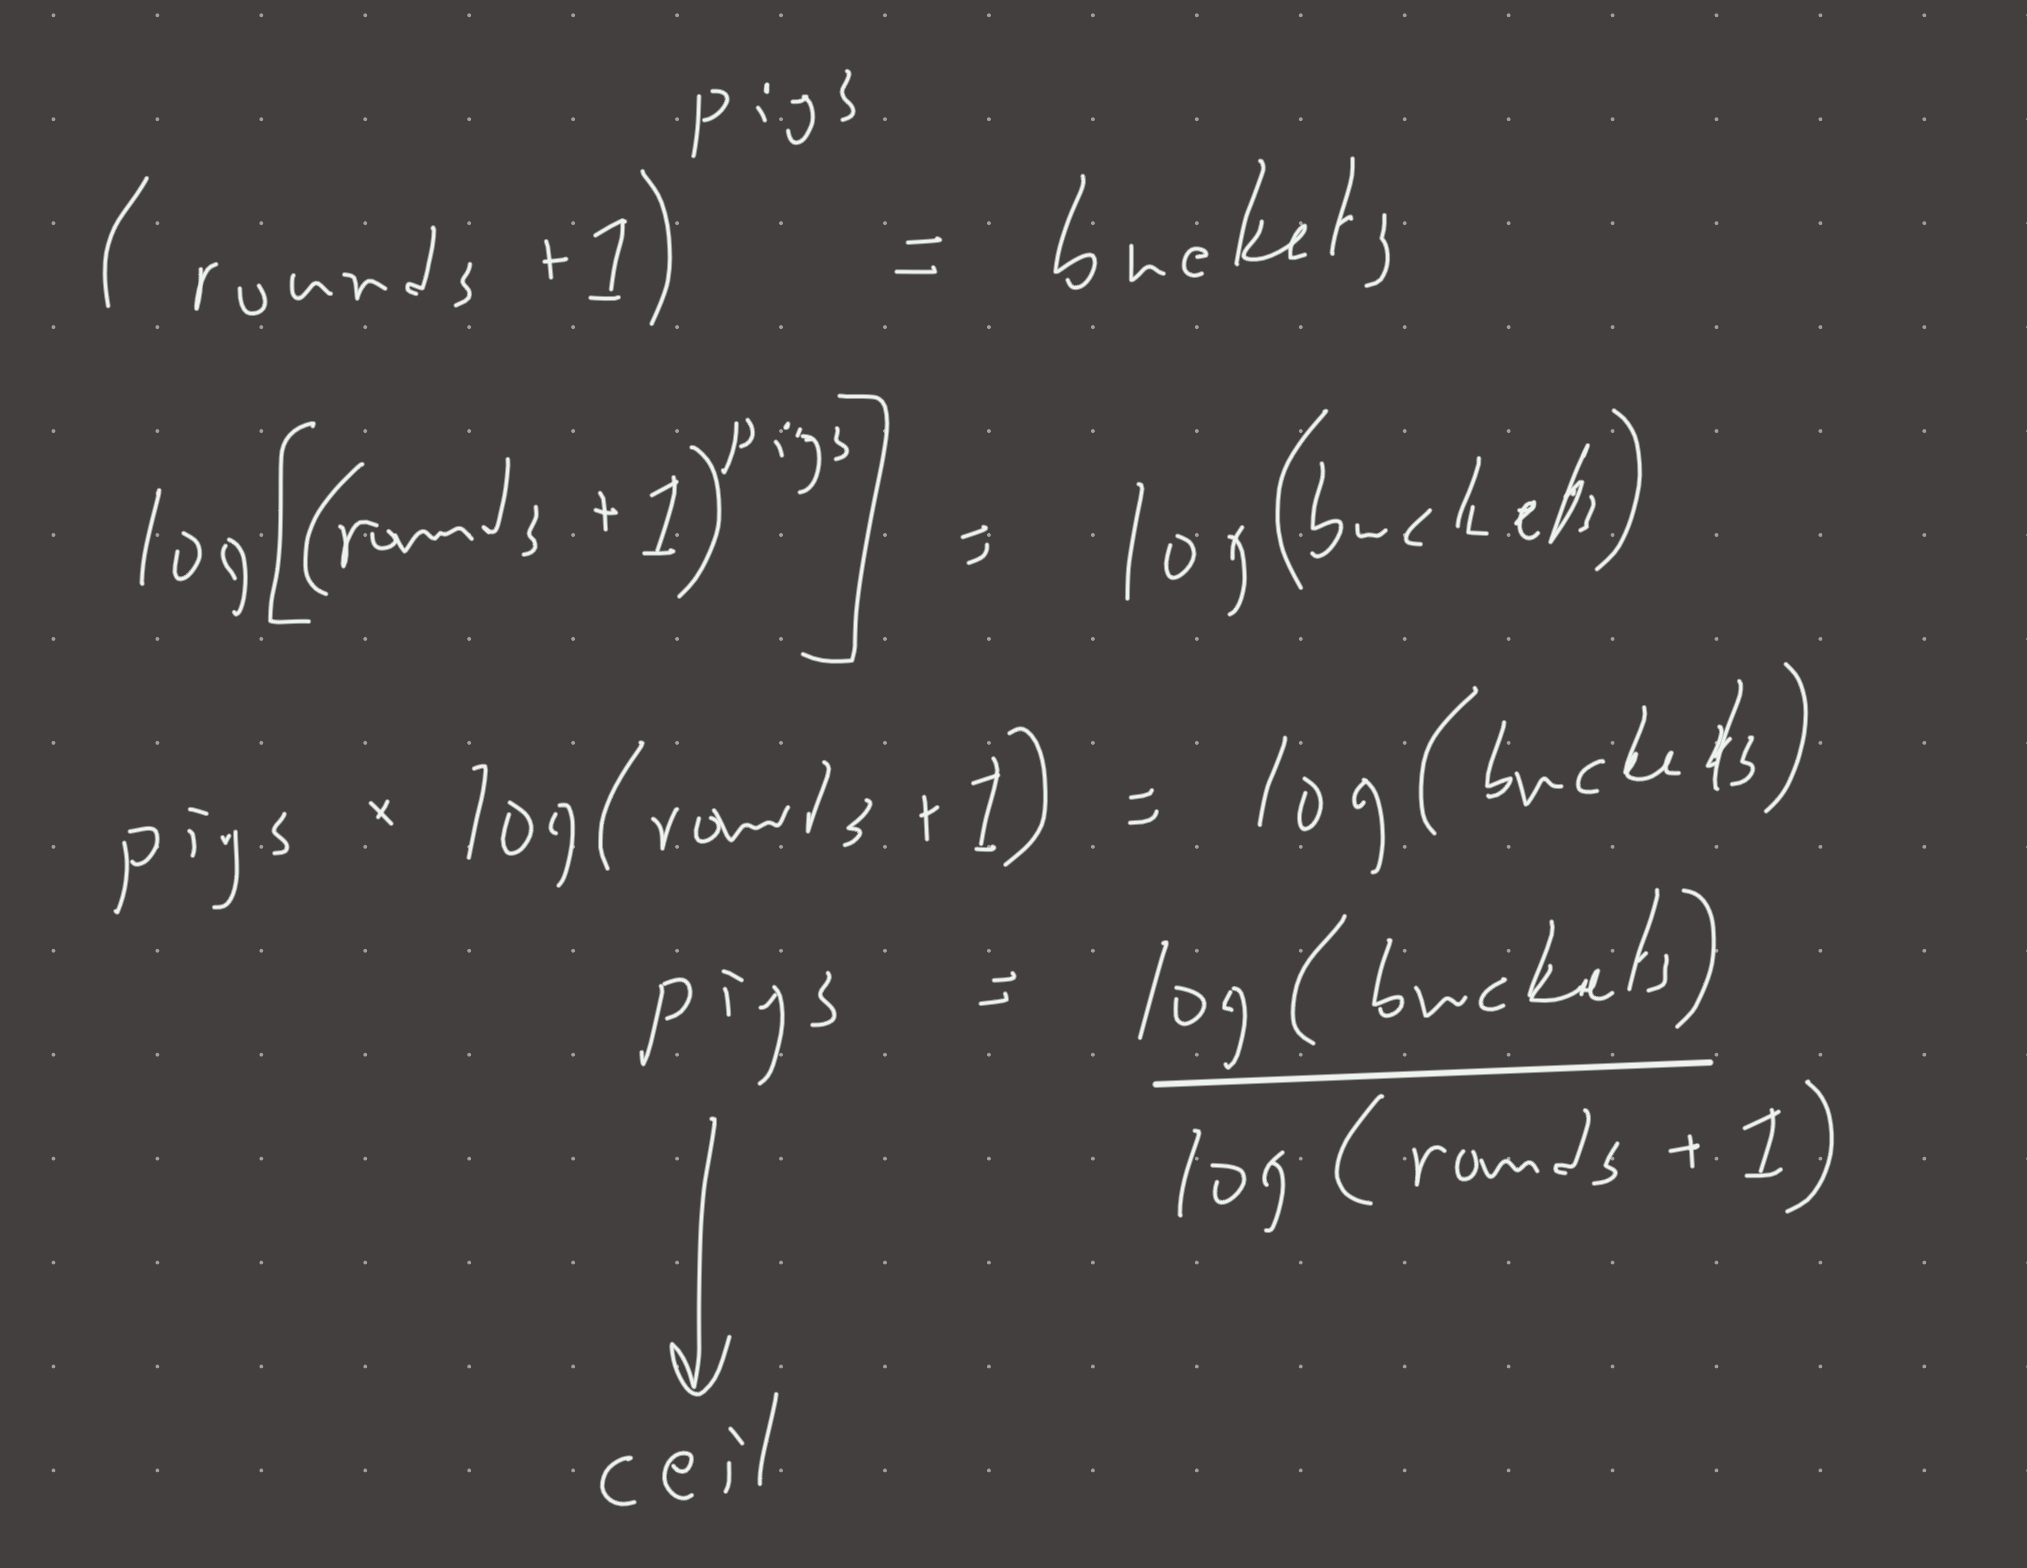 (rounds + 1)^pigs = buckets
log[(rounds + 1)^pigs] = log(buckets)
pigs × log(rounds + 1) = log(buckets)
pigs = log(buckets) / log(rounds + 1)
ceil